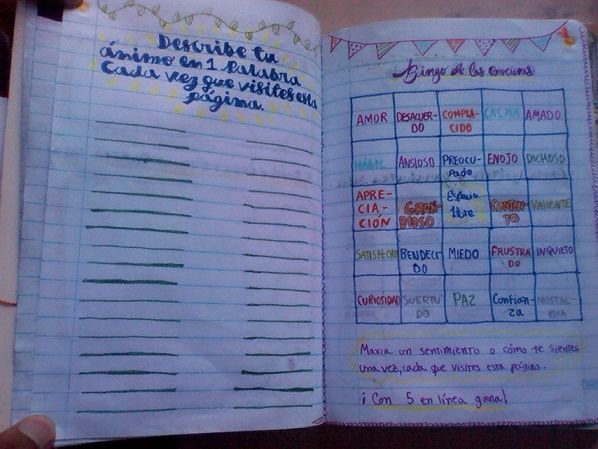 Describe tu
ánimo en 1 Palabra
Cada vez que visites esta
página.
Bingo de las Emociones
AMOR
DESACUER-
DO
COMPLA-
CIDO
CALMA
AMADO
HÁBIL
ANSIOSO
PREOCU-
Pado
ENOJO
DICHOSO
APRE-
CIA-
CIÓN
GRAN-
DIOSO
Espacio
libre
CONTEN-
TO
VALIENTE
SATISFECHO
BENDECI-
DO
MIEDO
FRUSTRA-
DO
INQUIETO
CURIOSIDAD
SUERTU-
DO
PAZ
Confian-
za
NOSTAL-
GIA
Marca un sentimiento o cómo te sientes
una vez, cada que visites esta página.
¡ Con 5 en línea gana!